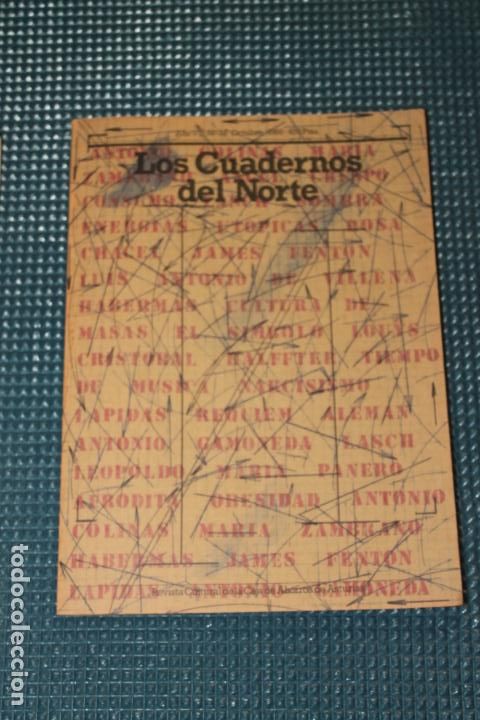 ANTONIO COLINAS MARIA
Los Cuadernos
del Norte
CONSUMO SOMBRA
ENERGIAS UTOPICAS ROSA
CHACEL JAMES FENTON
LUIS ANTONIO DE VILLENA
HABERMAS CULTURA DE
MASAS EL SIMBOLO LOUYS
CRISTOBAL HALFFTER TIEMPO
DE MUSICA NARCISISMO
LAPIDAS REQUIEM ALEMAN
ANTONIO GAMONEDA LASCH
LEOPOLDO MARIA PANERO
AFRODITA OBESIDAD ANTONIO
COLINAS MARIA ZAMBRANO
HABERMAS JAMES FENTON
Revista Cultural de la Caja de Ahorros de Asturias
LAPIDAS ANTONIO GAMONEDA
todocoleccion